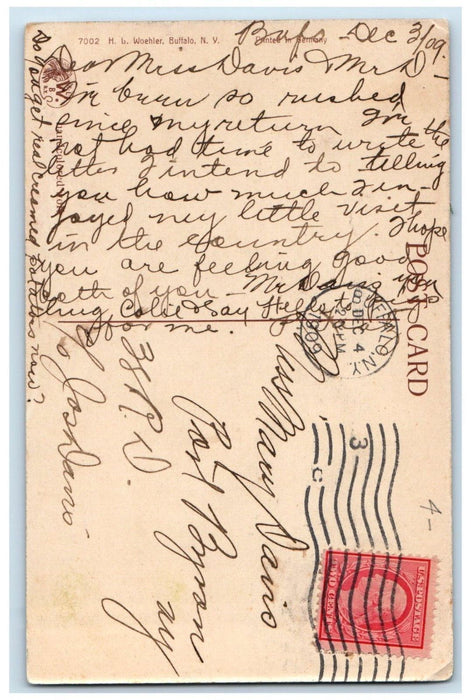 7002 H. L. Woehler, Buffalo, N. Y. Printed in Germany
Bufo - Dec 3/09 -
Dear Miss Davis & Mr D -
I've been so rushed
since my return I've
not had time to write the
letter I intend to telling
you how much I in-
joyed my little visit
in the country. I hope
you are feeling good
both of you - Mr Davis you
hug Collie Say Hellо
for me.
Do you get real creamed potatoes now?
POST CARD
BUFFALO, N.Y.
DEC 4
2 PM
1909
3
C
Miss Mary Davis
Port Byron
NY
38 R. D.
c/o Josh Davis
4-
U.S. POSTAGE
TWO CENTS